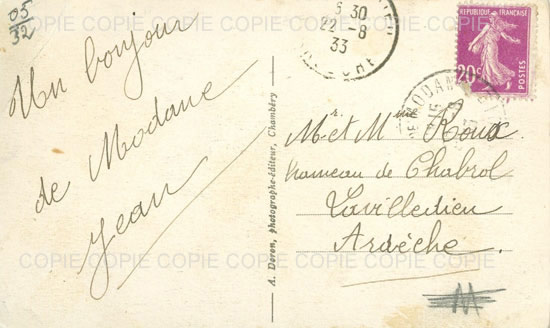 05
32
Un bonjour
de Modane
Jean
A. Deron, photographe-éditeur, Chambéry
30
22-8
33
REPUBLIQUE FRANÇAISE
20c
POSTES
MODANE
Mr et Mme Roux
hameau de Chabrol
Lavilledieu
Ardèche
COPIE COPIE COPIE COPIE COPIE COPIE COPIE
COPIE COPIE COPIE COPIE COPIE COPIE COPIE
COPIE COPIE COPIE COPIE COPIE COPIE COPIE